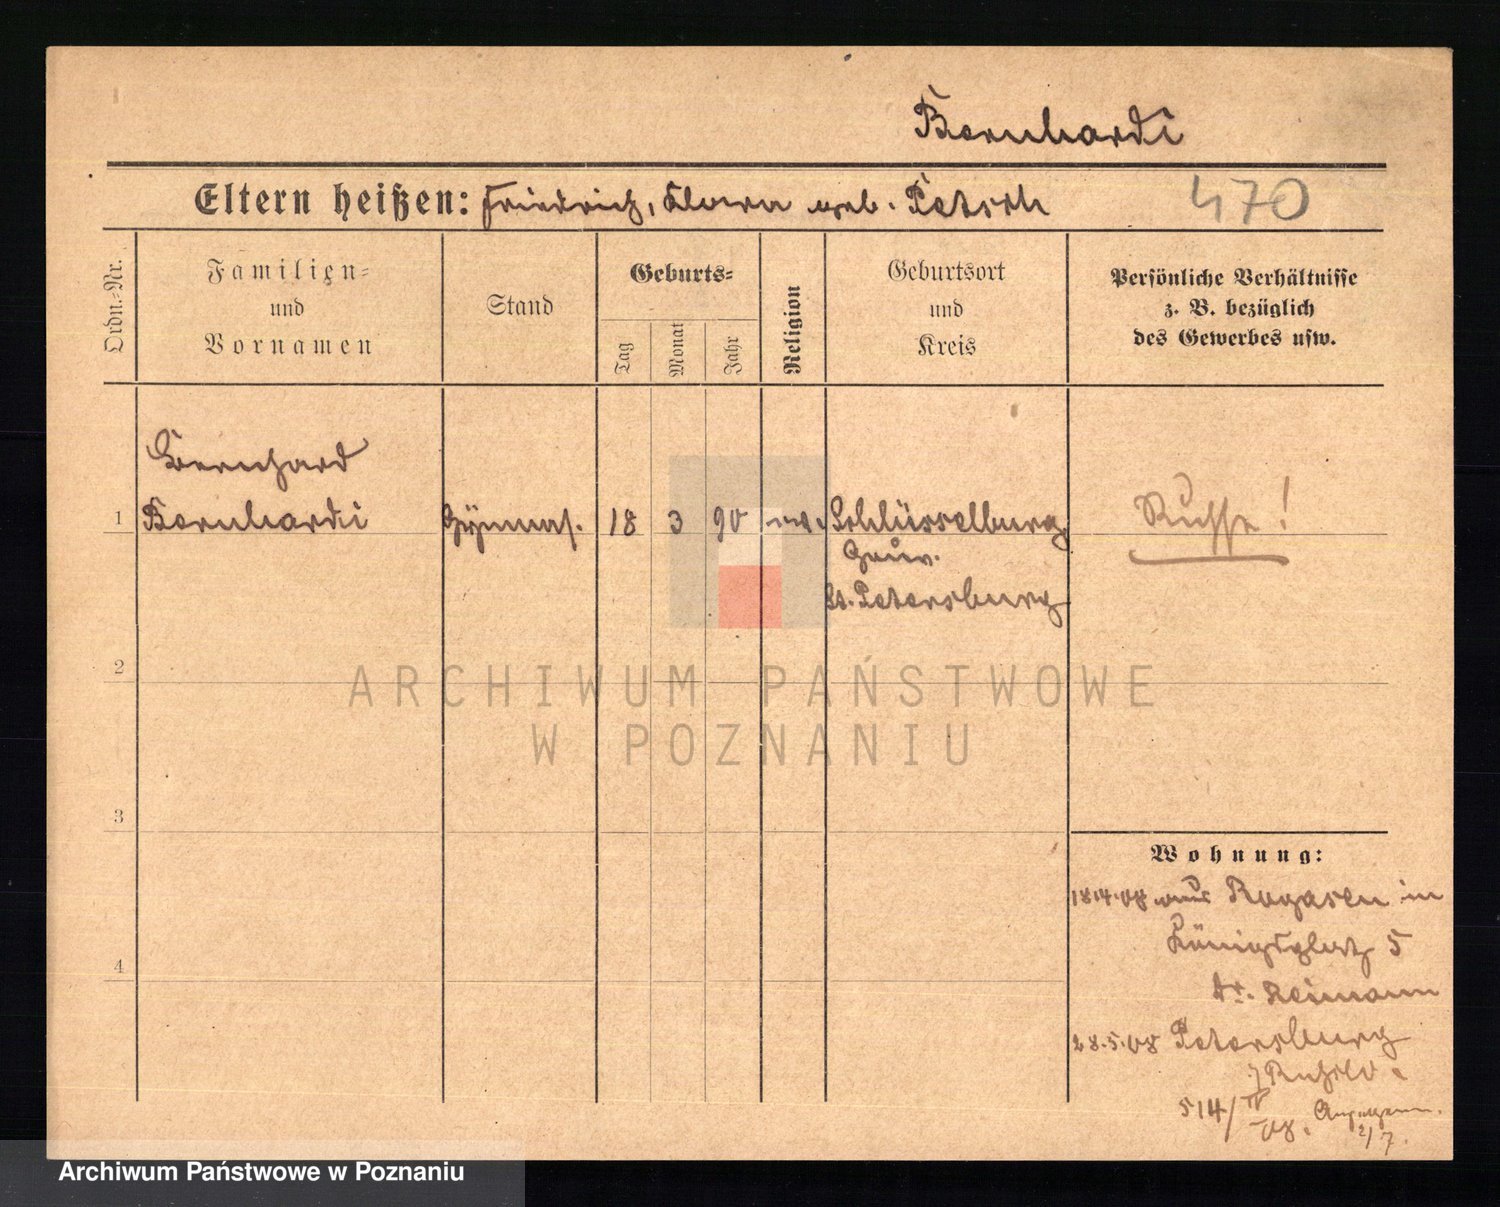 Bernhardi
Eltern heißen: Friedrich, Klara geb. Petsch 470
Ordn.-Nr.
Familien-
und
Vornamen
Stand
Geburts-
Tag
Monat
Jahr
Religion
Geburtsort
und
Kreis
Persönliche Verhältnisse
z. B. bezüglich
des Gewerbes usw.
Bernhard
1 Bernhardi Gymnas. 18 3 90 ev. Schlüsselburg
Gouv.
St. Petersburg
Russe!
2
3
4
Wohnung:
18.4.08 aus Rogasen in
Königsplatz 5
Dr. Reimann
28.5.08 Petersburg
514/IV
08.
2/7.
ARCHIWUM PAŃSTWOWE
W POZNANIU
Archiwum Państwowe w Poznaniu